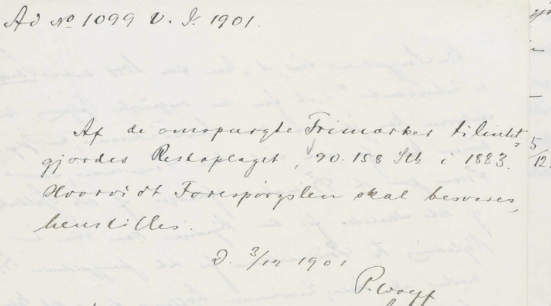 Ad No 1099 V. I. 1901.
Af de omspurgte Frimærker tilintet-
gjordes Restoplaget, 90.158 Stk i 1883.
Hvorvidt Forespørgslen skal besvares,
henstilles.
D. 3/12 1901
5/12